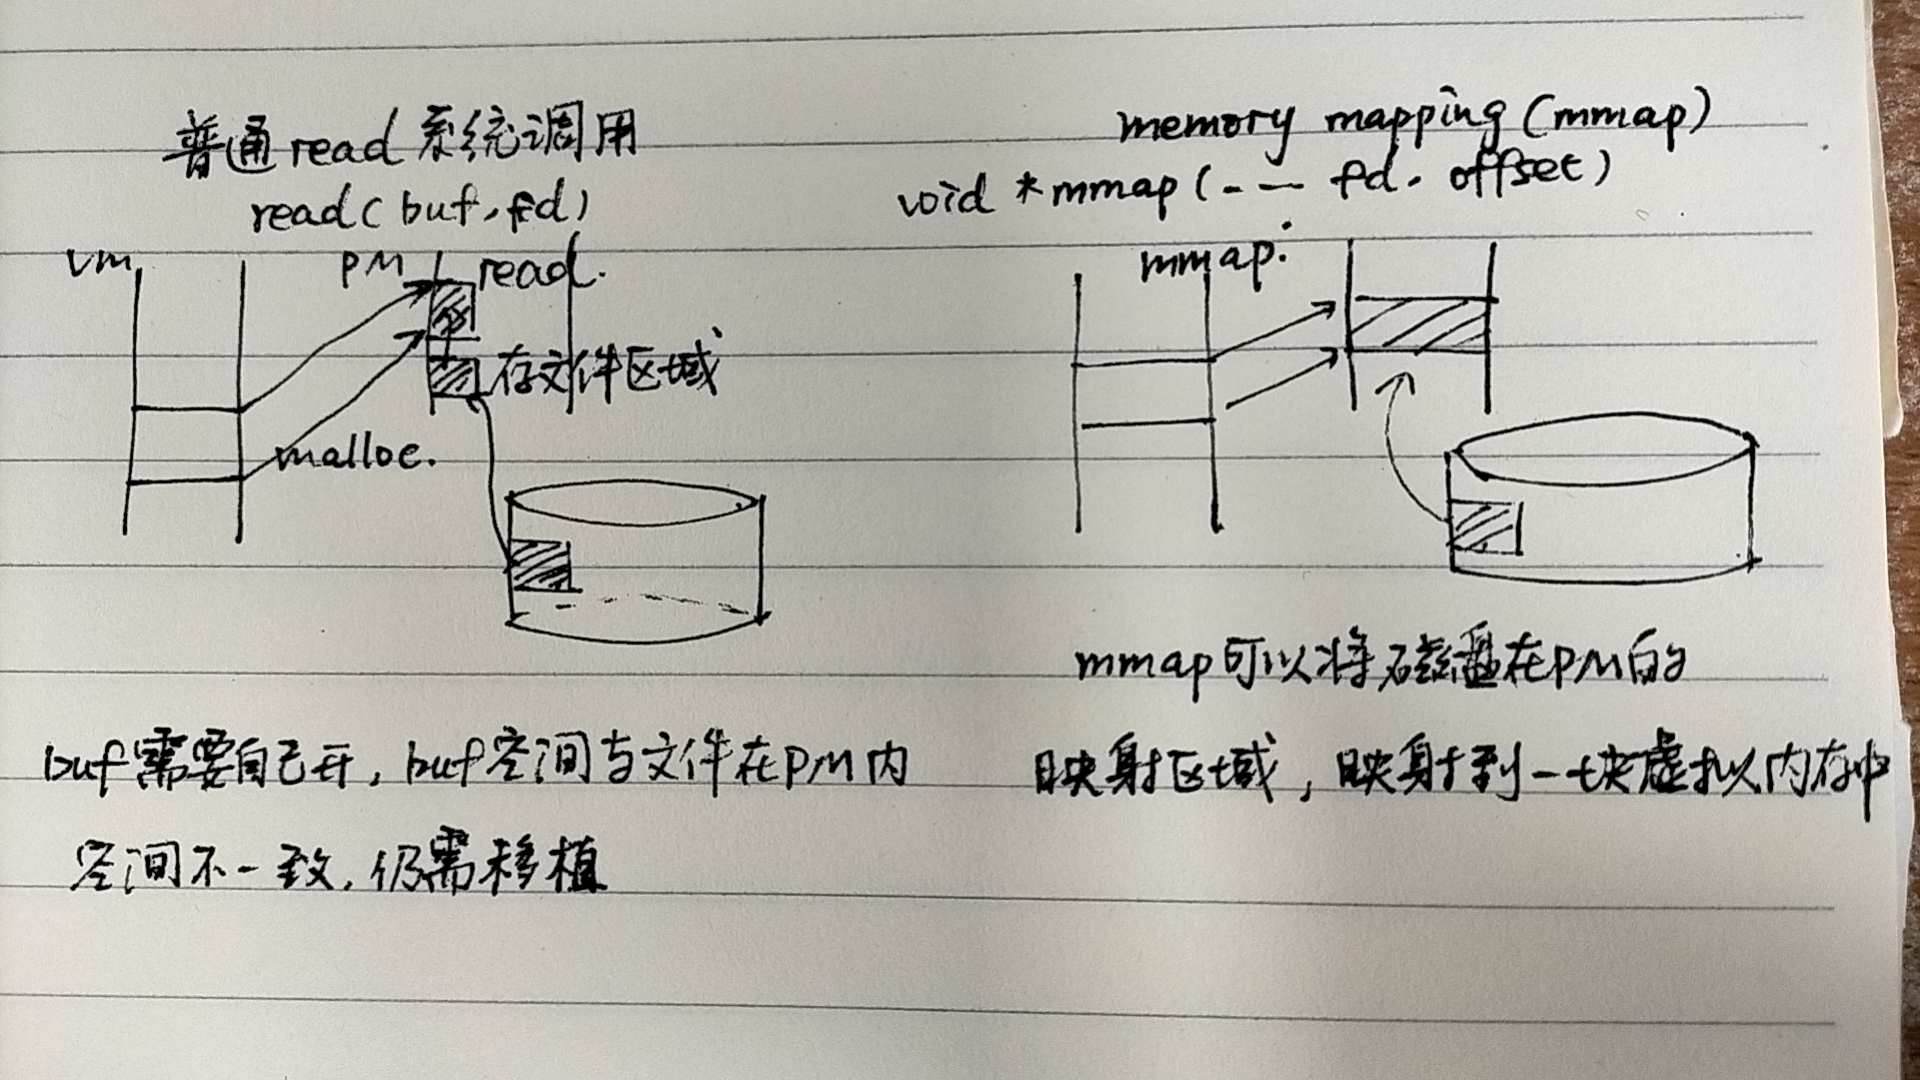 普通read系统调用
read(buf,fd)
vm
PM
read.
存文件区域
malloc.
buf需要自己开,buf空间与文件在PM内
空间不一致,仍需移植
memory mapping(mmap)
void *mmap(-— fd. offset)
mmap.
mmap可以将磁盘在PM的
映射区域,映射到一块虚拟内存中